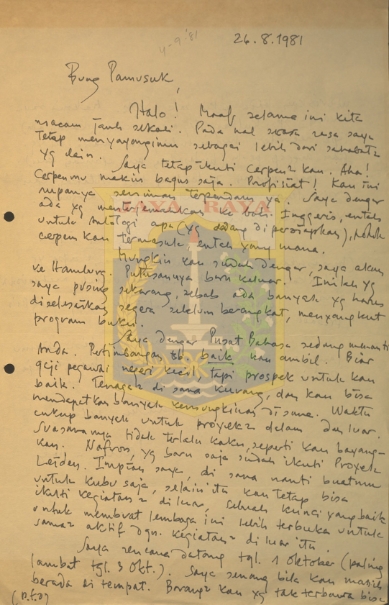 4-9-'81
26.8.1981
Bung Pamusuk,
Halo! Maaf selama ini kita
macam jauh sekali. Pada hal saya rasa saya
tetap menyayangimu sebagai lebih dari sahabat2
yg lain.
Saya tetap ikuti cerpen2 kau. Aha!
Cerpenmu makin bagus saja. Profisiat! Kau ini
rupanya seniman terpendam ya. Saya dengar
ada yg menterjemahkan ke bhs. Inggeris, entah
untuk Antologi apa (yg sedang dipersiapkan),
cerpen kau termasuk, entah yang mana.
Mungkin kau sudah dengar, saya akan
ke Hamburg. Putusannya baru keluar! Inilah yg
saya pusing sekarang, sebab ada banyak yg harus
diselesaikan segera sebelum berangkat, menyangkut
program buku.
Saya dengar Pusat Bahasa sedang menanti
Anda. Pertimbangan tsb. baik kau ambil. Biar
gaji pegawai negeri kecil, tapi prospek untuk kau
baik. Tenaga di sana kurang, dan kau bisa
mendapatkan banyak kemungkinan di sana. Waktu
cukup banyak untuk proyek2 dalam dan luar.
Suasananya tidak terlalu kaku, seperti kau bayang-
kan. Nafron yg baru saja sudah ikuti Proyek
Leiden. Impian saya di sana nanti buatmu
untuk kubu saja, selain itu kau tetap bisa
ikuti kegiatan2 di luar. Sebuah kunci yang baik
untuk membuat lembaga ini lebih terbuka untuk
sama2 aktif dgn. kegiatan2 di luar itu.
Saya rencana datang tgl. 1 Oktober (paling
lambat tgl. 3 Okt.). Saya senang bila kau masih
berada di tempat. Barang2 kau yg tak terbawa bisa
(p.t.o)
JAYA RAYA